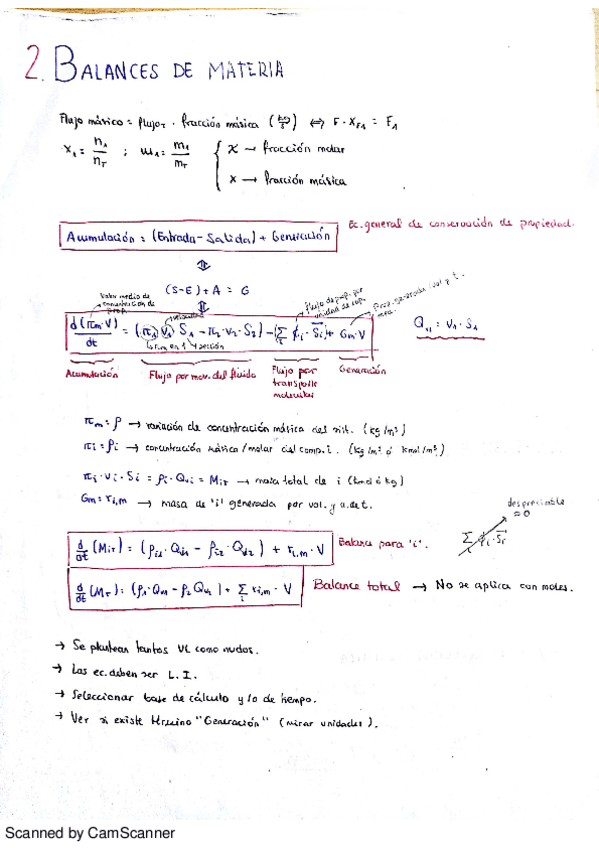 2. BALANCES DE MATERIA
Flujo másico = flujo_T · fracción másica (kg/s) ⇔ F · X_FA = F_A
X_1 = n_1/n_T ; ω_1 = m_1/m_T { x → fracción molar
x → fracción másica
Acumulación = (Entrada - Salida) + Generación
Ec. general de conservación de propiedad.
⇕
(S-E) + A = G
⇕
Valor medio de concentración de prop.
velocidad
Flujo de prop. por unidad de sup.
Prop. generada / vol. y t.
d(π_m·V)/dt = (π_1 v_1 S_1 - π_2·v_2·S_2) - (Σ_i φ_i·S_i) + G_m·V
Q_v1 = v_1·S_1
π_m en 1 sección
Acumulación Flujo por mov. del fluido Flujo por transporte molecular Generación
π_m = ρ → variación de concentración másica del sist. (kg/m³)
π_i = ρ_i → concentración másica/molar del comp. i. (kg/m³ ó kmol/m³)
π_i · v_i · S_i = ρ_i · Q_vi = M_iT → masa total de i (kmol ó kg)
G_m = r_i,m → masa de 'i' generada por vol. y u. de t.
despreciable ≈ 0
Σ_i φ_i·S_i
d/dt (M_iT) = (ρ_i1 · Q_v1 - ρ_i2 · Q_v2) + r_i,m · V Balance para 'i'.
d/dt (M_T) = (ρ_1 · Q_v1 - ρ_2 Q_v2) + Σ_i r_i,m · V Balance total → No se aplica con moles.
→ Se plantean tantos VC como nudos.
→ Las ec. deben ser L.I.
→ Seleccionar base de cálculo y/o de tiempo.
→ Ver si existe término "Generación" (mirar unidades).
Scanned by CamScanner